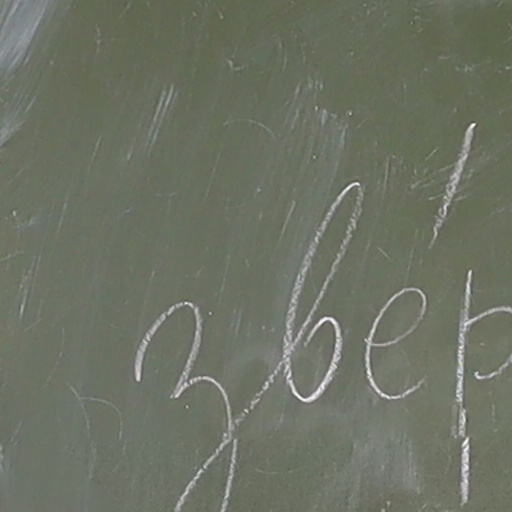 звер